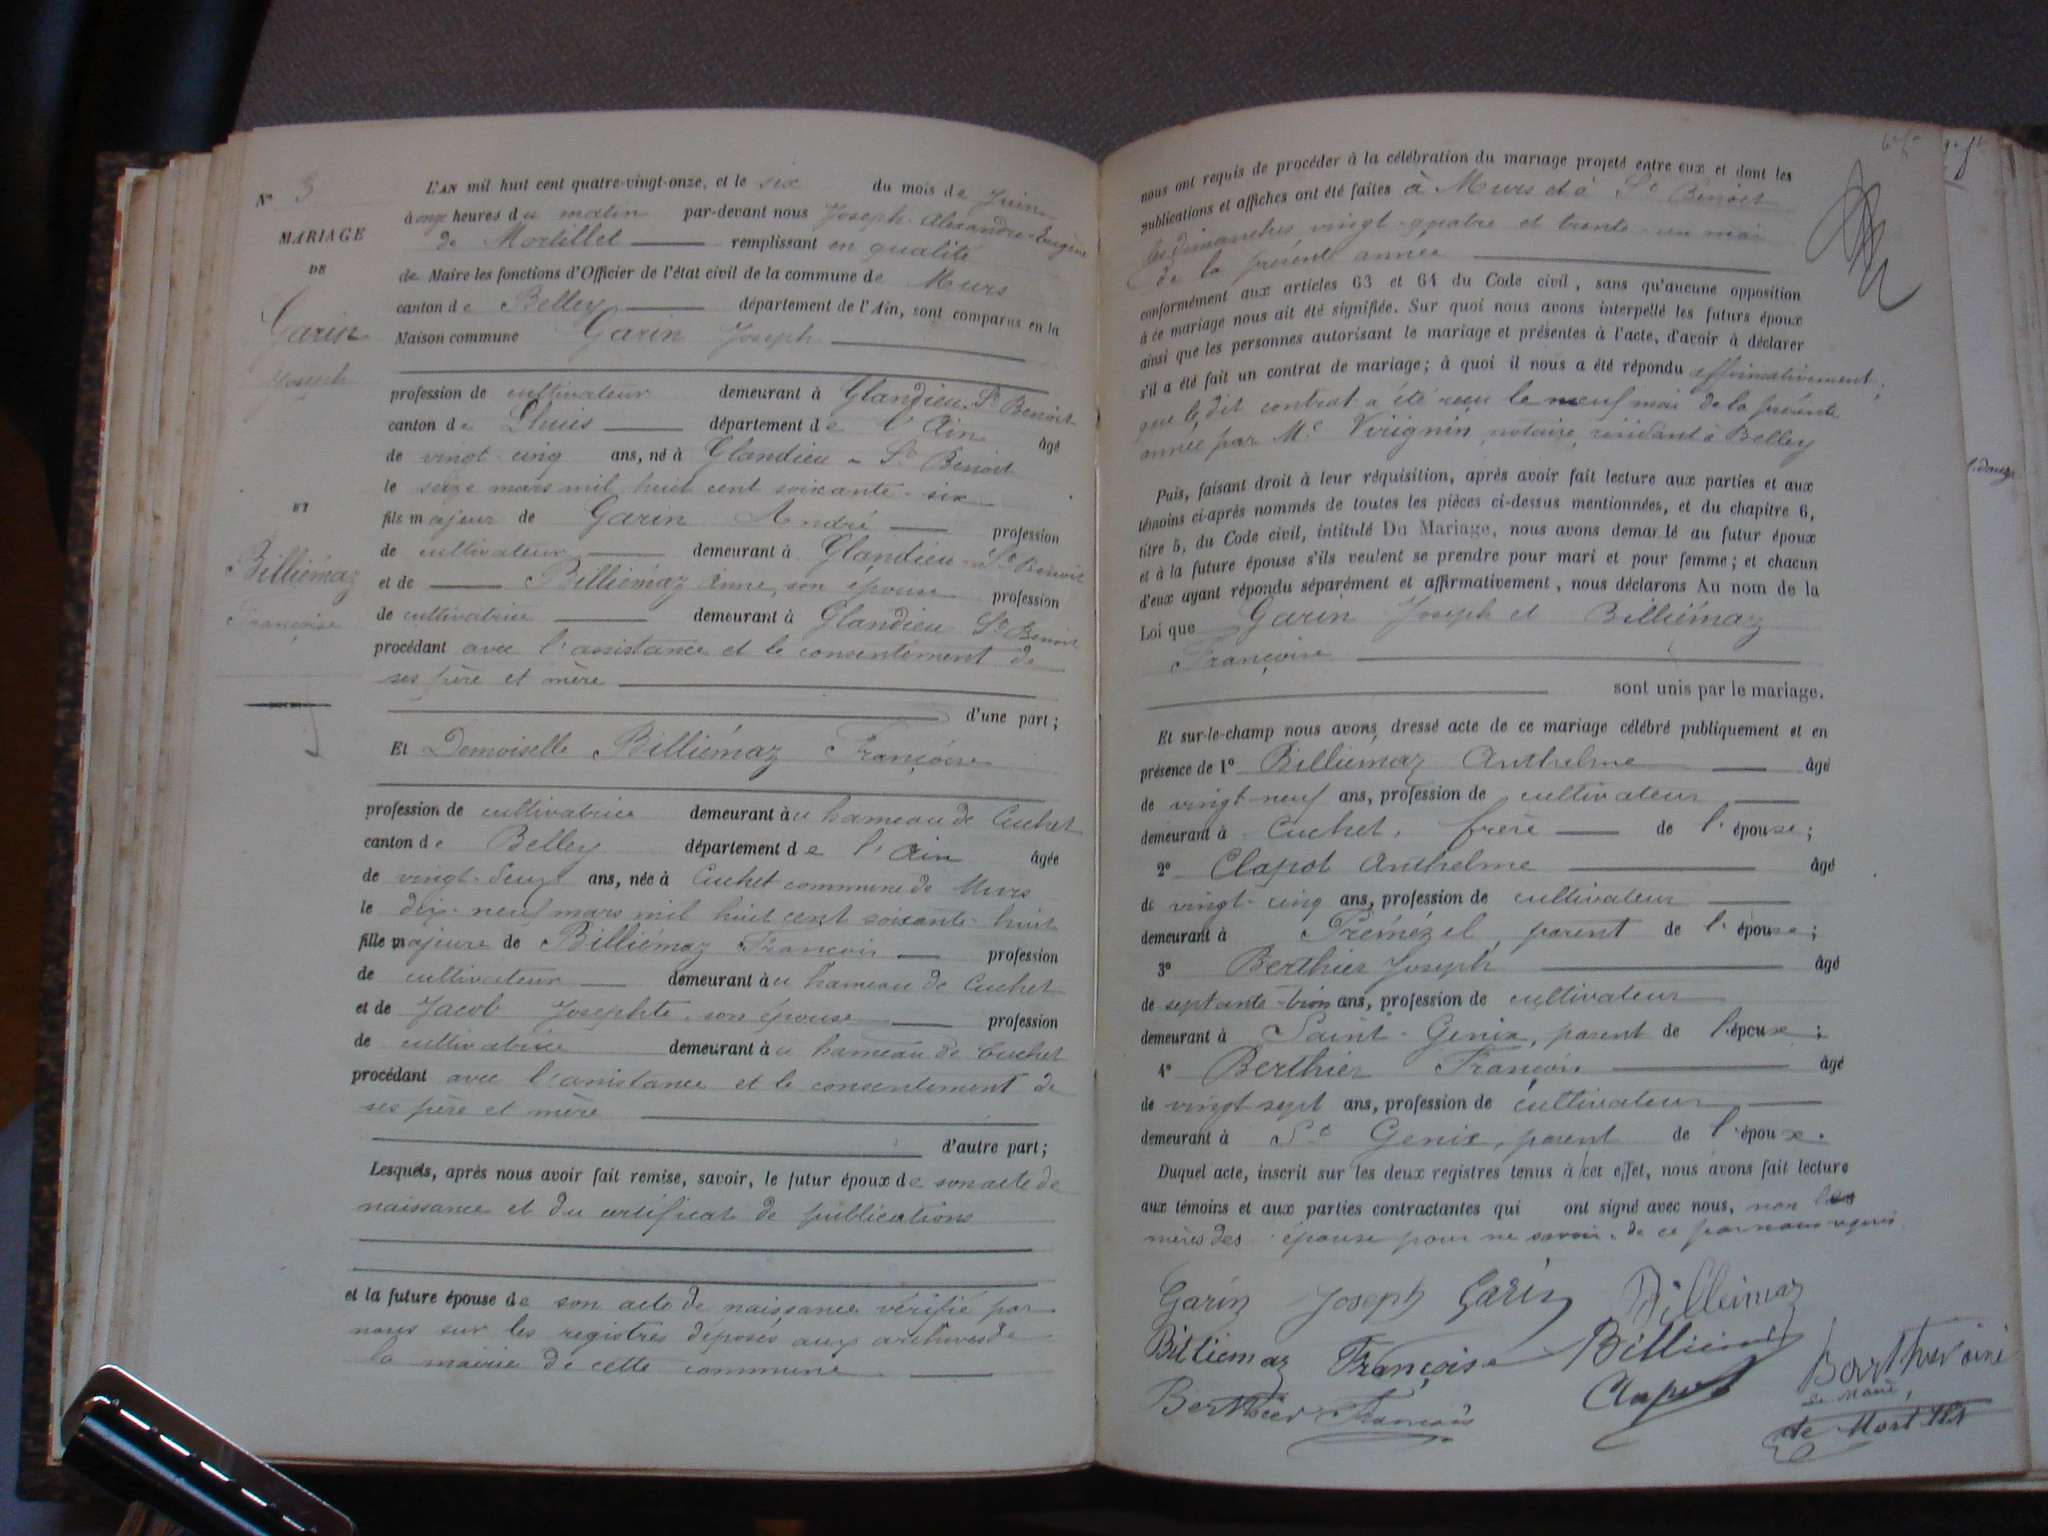 N° 3
MARIAGE
DE
Garin
Joseph
ET
Billiémaz
Françoise
L'AN mil huit cent quatre-vingt-onze, et le six du mois de Juin
à onze heures du matin par-devant nous Joseph-Alexandre-Eugène
de Mortillet remplissant en qualité
de Maire les fonctions d'Officier de l'état civil de la commune de Murs
canton de Belley département de l'Ain, sont comparus en la
Maison commune Garin Joseph
profession de cultivateur demeurant à Glandieu, St Benoit
canton de Lhuis département de l'Ain âgé
de vingt-cinq ans, né à Glandieu - St Benoit
le seize mars mil huit cent soixante-six
fils majeur de Garin André profession
de cultivateur demeurant à Glandieu - St Benoit
et de Billiémaz Anne, son épouse profession
de cultivatrice demeurant à Glandieu St Benoit
procédant avec l'assistance et le consentement de
ses père et mère
d'une part;
Et Demoiselle Billiémaz Françoise
profession de cultivatrice demeurant au hameau de Cuchet
canton de Belley département de l'Ain âgée
de vingt-deux ans, née à Cuchet commune de Murs
le dix-neuf mars mil huit cent soixante-huit
fille majeure de Billiémaz François profession
de cultivateur demeurant au hameau de Cuchet
et de Jacob Josephte, son épouse profession
de cultivatrice demeurant au hameau de Cuchet
procédant avec l'assistance et le consentement de
ses père et mère
d'autre part;
Lesquels, après nous avoir fait remise, savoir, le futur époux de son acte de
naissance et du certificat de publications
et la future épouse de son acte de naissance vérifié par
nous sur les registres déposés aux archives de
la mairie de cette commune
nous ont requis de procéder à la célébration du mariage projeté entre eux et dont les
publications et affiches ont été faites à Murs et à St Benoit
les dimanches vingt-quatre et trente-un mai
de la présente année
conformément aux articles 63 et 64 du Code civil, sans qu'aucune opposition
à ce mariage nous ait été signifiée. Sur quoi nous avons interpellé les futurs époux
ainsi que les personnes autorisant le mariage et présentes à l'acte, d'avoir à déclarer
s'il a été fait un contrat de mariage; à quoi il nous a été répondu affirmativement;
que le dit contrat a été reçu le neuf mai de la présente
année par Me Virignin, notaire, résidant à Belley
Puis, faisant droit à leur réquisition, après avoir fait lecture aux parties et aux
témoins ci-après nommés de toutes les pièces ci-dessus mentionnées, et du chapitre 6,
titre 5, du Code civil, intitulé Du Mariage, nous avons demandé au futur époux
et à la future épouse s'ils veulent se prendre pour mari et pour femme; et chacun
d'eux ayant répondu séparément et affirmativement, nous déclarons Au nom de la
Loi que Garin Joseph et Billiémaz
Françoise
sont unis par le mariage.
Et sur-le-champ nous avons dressé acte de ce mariage célébré publiquement et en
présence de 1° Billiémaz Anthelme âgé
de vingt-neuf ans, profession de cultivateur
demeurant à Cuchet, frère de l'épouse;
2° Clapot Anthelme âgé
de vingt-cinq ans, profession de cultivateur
demeurant à Prémézel, parent de l'épouse;
3° Berthier Joseph âgé
de septante-trois ans, profession de cultivateur
demeurant à Saint-Genix, parent de l'époux;
4° Berthier François âgé
de vingt-sept ans, profession de cultivateur
demeurant à St Genix, parent de l'époux.
Duquel acte, inscrit sur les deux registres tenus à cet effet, nous avons fait lecture
aux témoins et aux parties contractantes qui ont signé avec nous, non les
mères des épouse pour ne savoir, de ce par nous requis
Garin Joseph Garin Billiémaz
Billiemaz Françoise Billiémaz
Berthier François Clapot
Le Maire,
de Mortillet